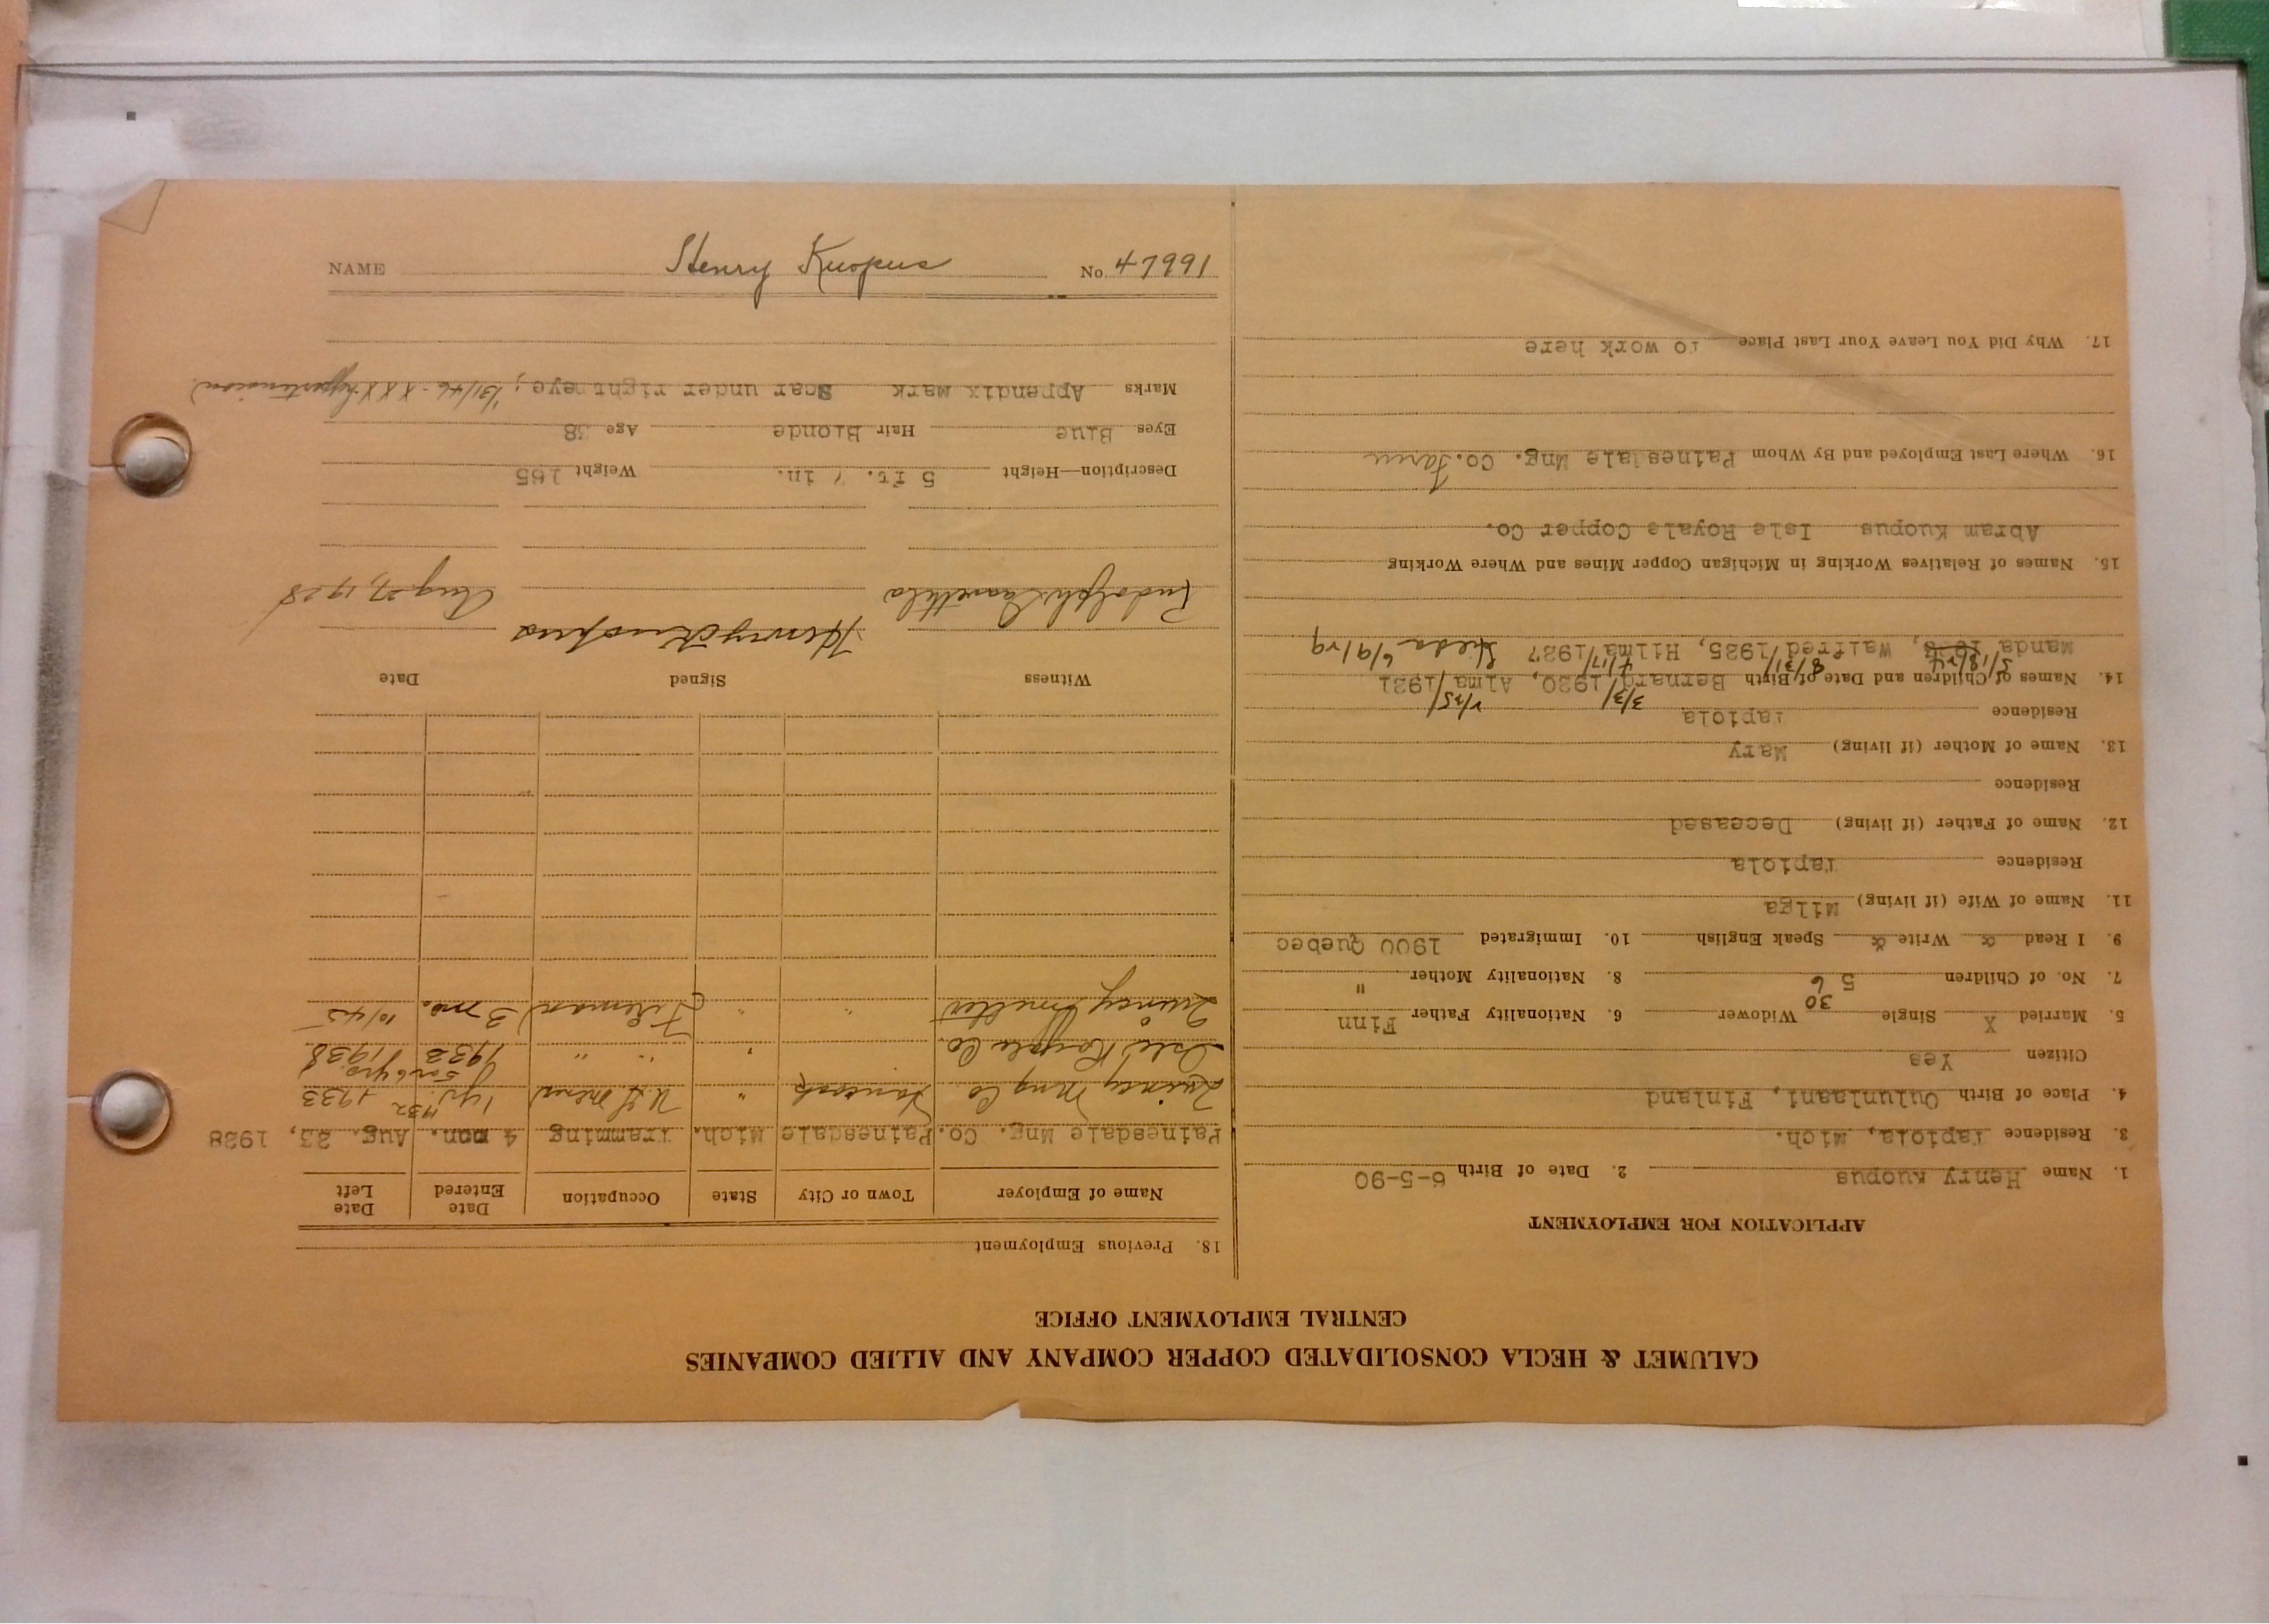 CALUMET & HECLA CONSOLIDATED COPPER COMPANY AND ALLIED COMPANIES
CENTRAL EMPLOYMENT OFFICE
APPLICATION FOR EMPLOYMENT
1. Name Henry Kuopus 2. Date of Birth 6-5-90
3. Residence Tapiola, Mich.
4. Place of Birth Oulunlaani, Finland
Citizen Yes
5. Married X Single Widower 30 6. Nationality Father Finn
7. No. of Children 5 6 8. Nationality Mother "
9. I Read & Write & Speak English 10. Immigrated 1900 Quebec
11. Name of Wife (if living) Milga
Residence Tapiola
12. Name of Father (if living) Deceased
Residence
13. Name of Mother (if living) Mary
Residence Tapiola
3/31/ 4/25/
14. Names of Children and Date of Birth Bernard, 1930, Alma 1931
5/18/34 8/31/ 4/17/
Manda, Walfred 1935, Hilma 1937
15. Names of Relatives Working in Michigan Copper Mines and Where Working
Abram Kuopus Isle Royale Copper Co.
16. Where Last Employed and By Whom Painesdale Mng. Co. Farm
17. Why Did You Leave Your Last Place To work here
18. Previous Employment
Name of Employer Town or City State Occupation Date Entered Date Left
Painesdale Mng. Co. Painesdale Mich. Tramming 4 mon. Aug. 23, 1938
Quincy Mng Co. Hancock " 1 yr. 1932 1933
Isle Royale Co. " " " 1933 5 or 6 yrs. 1938
Quincy Smelter " " Fileman 3 mo. 10/45
Witness Signed Date
Henry Kuopus Aug 27, 1938
Description—Height 5 ft. 7 in. Weight 165
Eyes Blue Hair Blonde Age 38
Marks Appendix mark Scar under right eye; 1/31/46 - XXX hypertension
NAME Henry Kuopus No. 47991